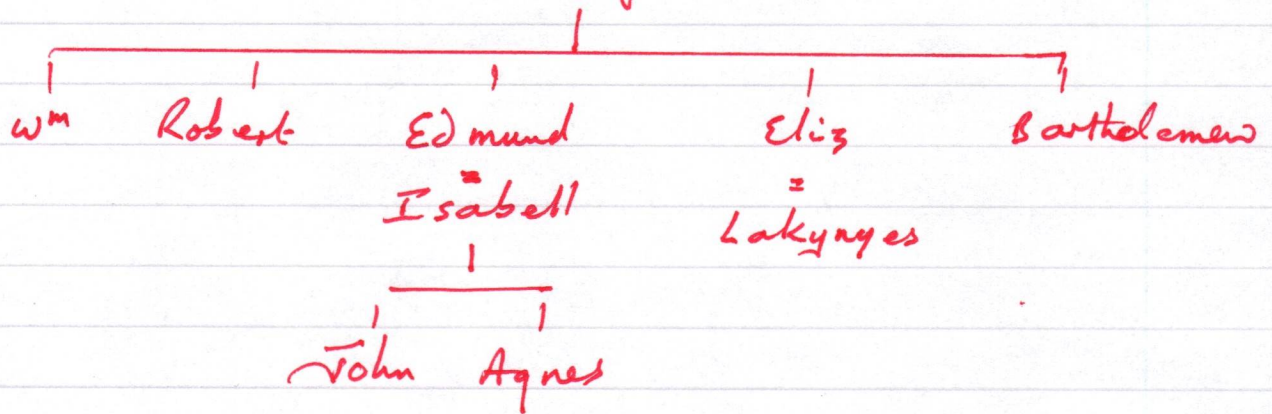 Wm Robert Edmund Eliz Bartholomew
= =
Isabell Lakynyes
John Agnes